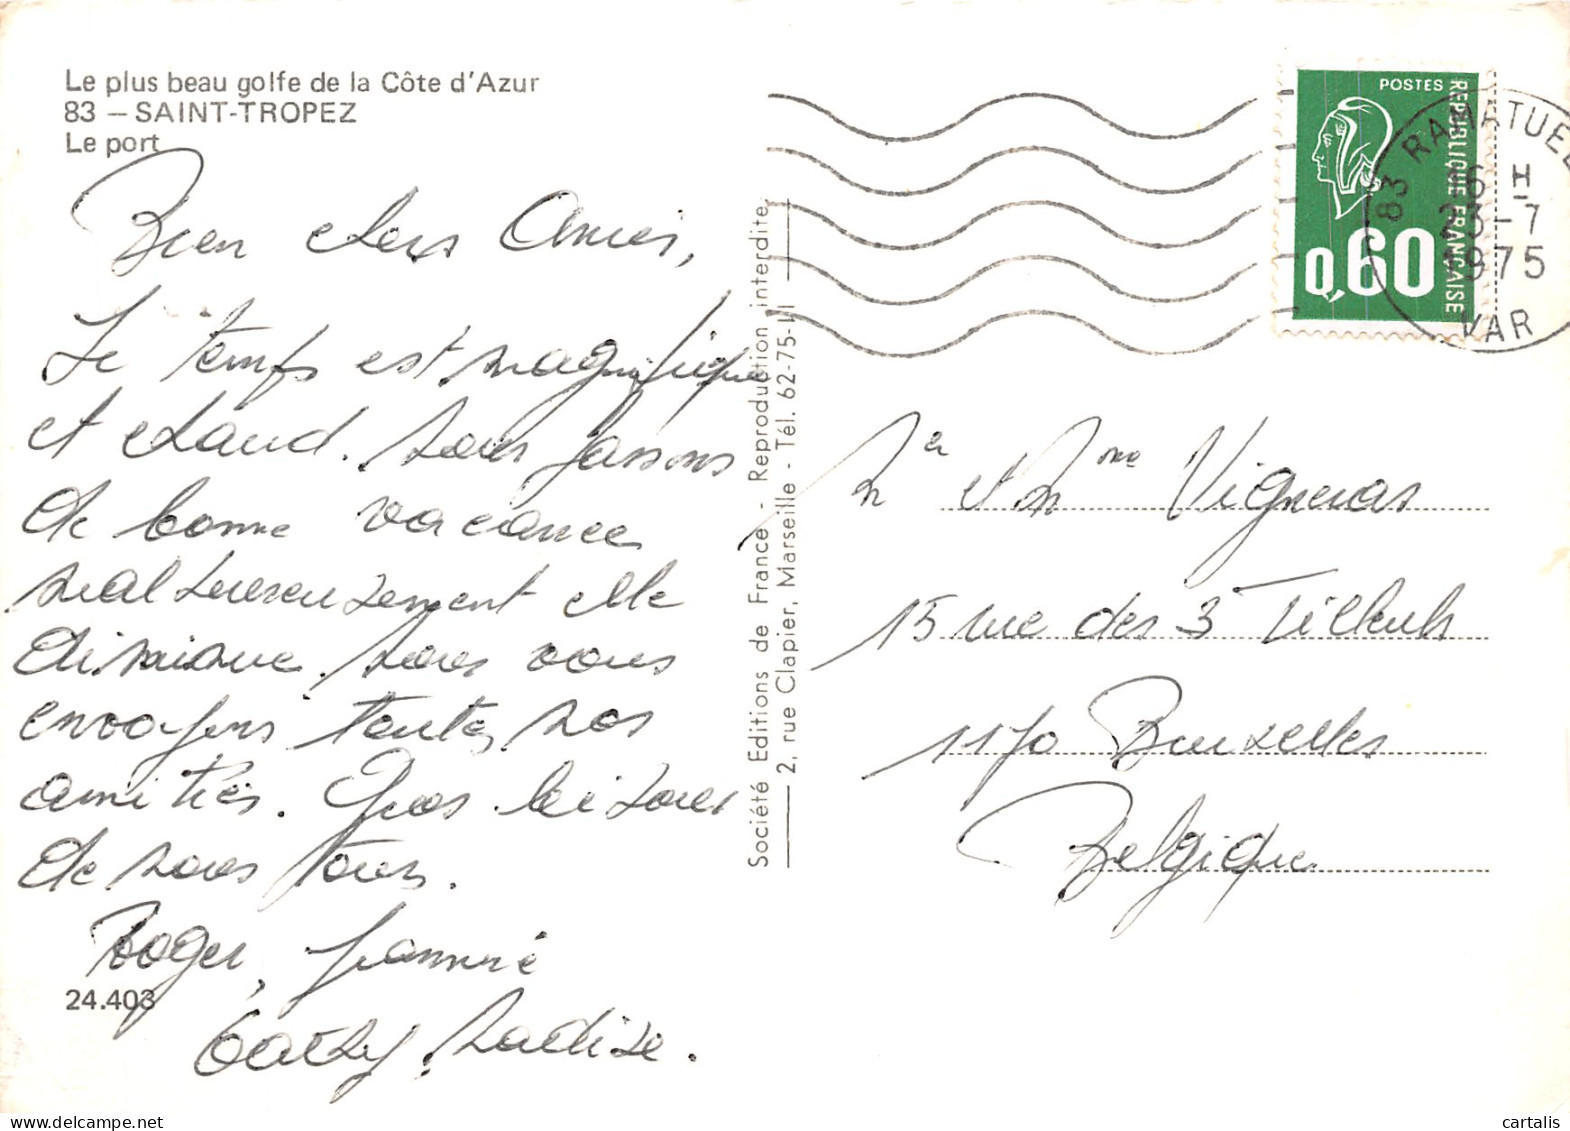 Le plus beau golfe de la Côte d'Azur
83 – SAINT-TROPEZ
Le port
Bien chers Amies,
Le temps est magnifique
et chaud. Nous passons
de bonne vacances
malheureusement elle
diminue. Nous vous
envoyons toutes nos
amitiés. Gros baisers
de nous tous.
Roger, Jeannine
Cathy, Nadine.
24.403
Société Editions de France - Reproduction interdite
2, rue Clapier, Marseille - Tél. 62-75-11
POSTES
REPUBLIQUE FRANÇAISE
0,60
83 RAMATUEL
16 H
23-7
1975
VAR
Mr et Mme Vigneras
15 rue des 3 Tilleuls
1170 Bruxelles
Belgique
cartalis